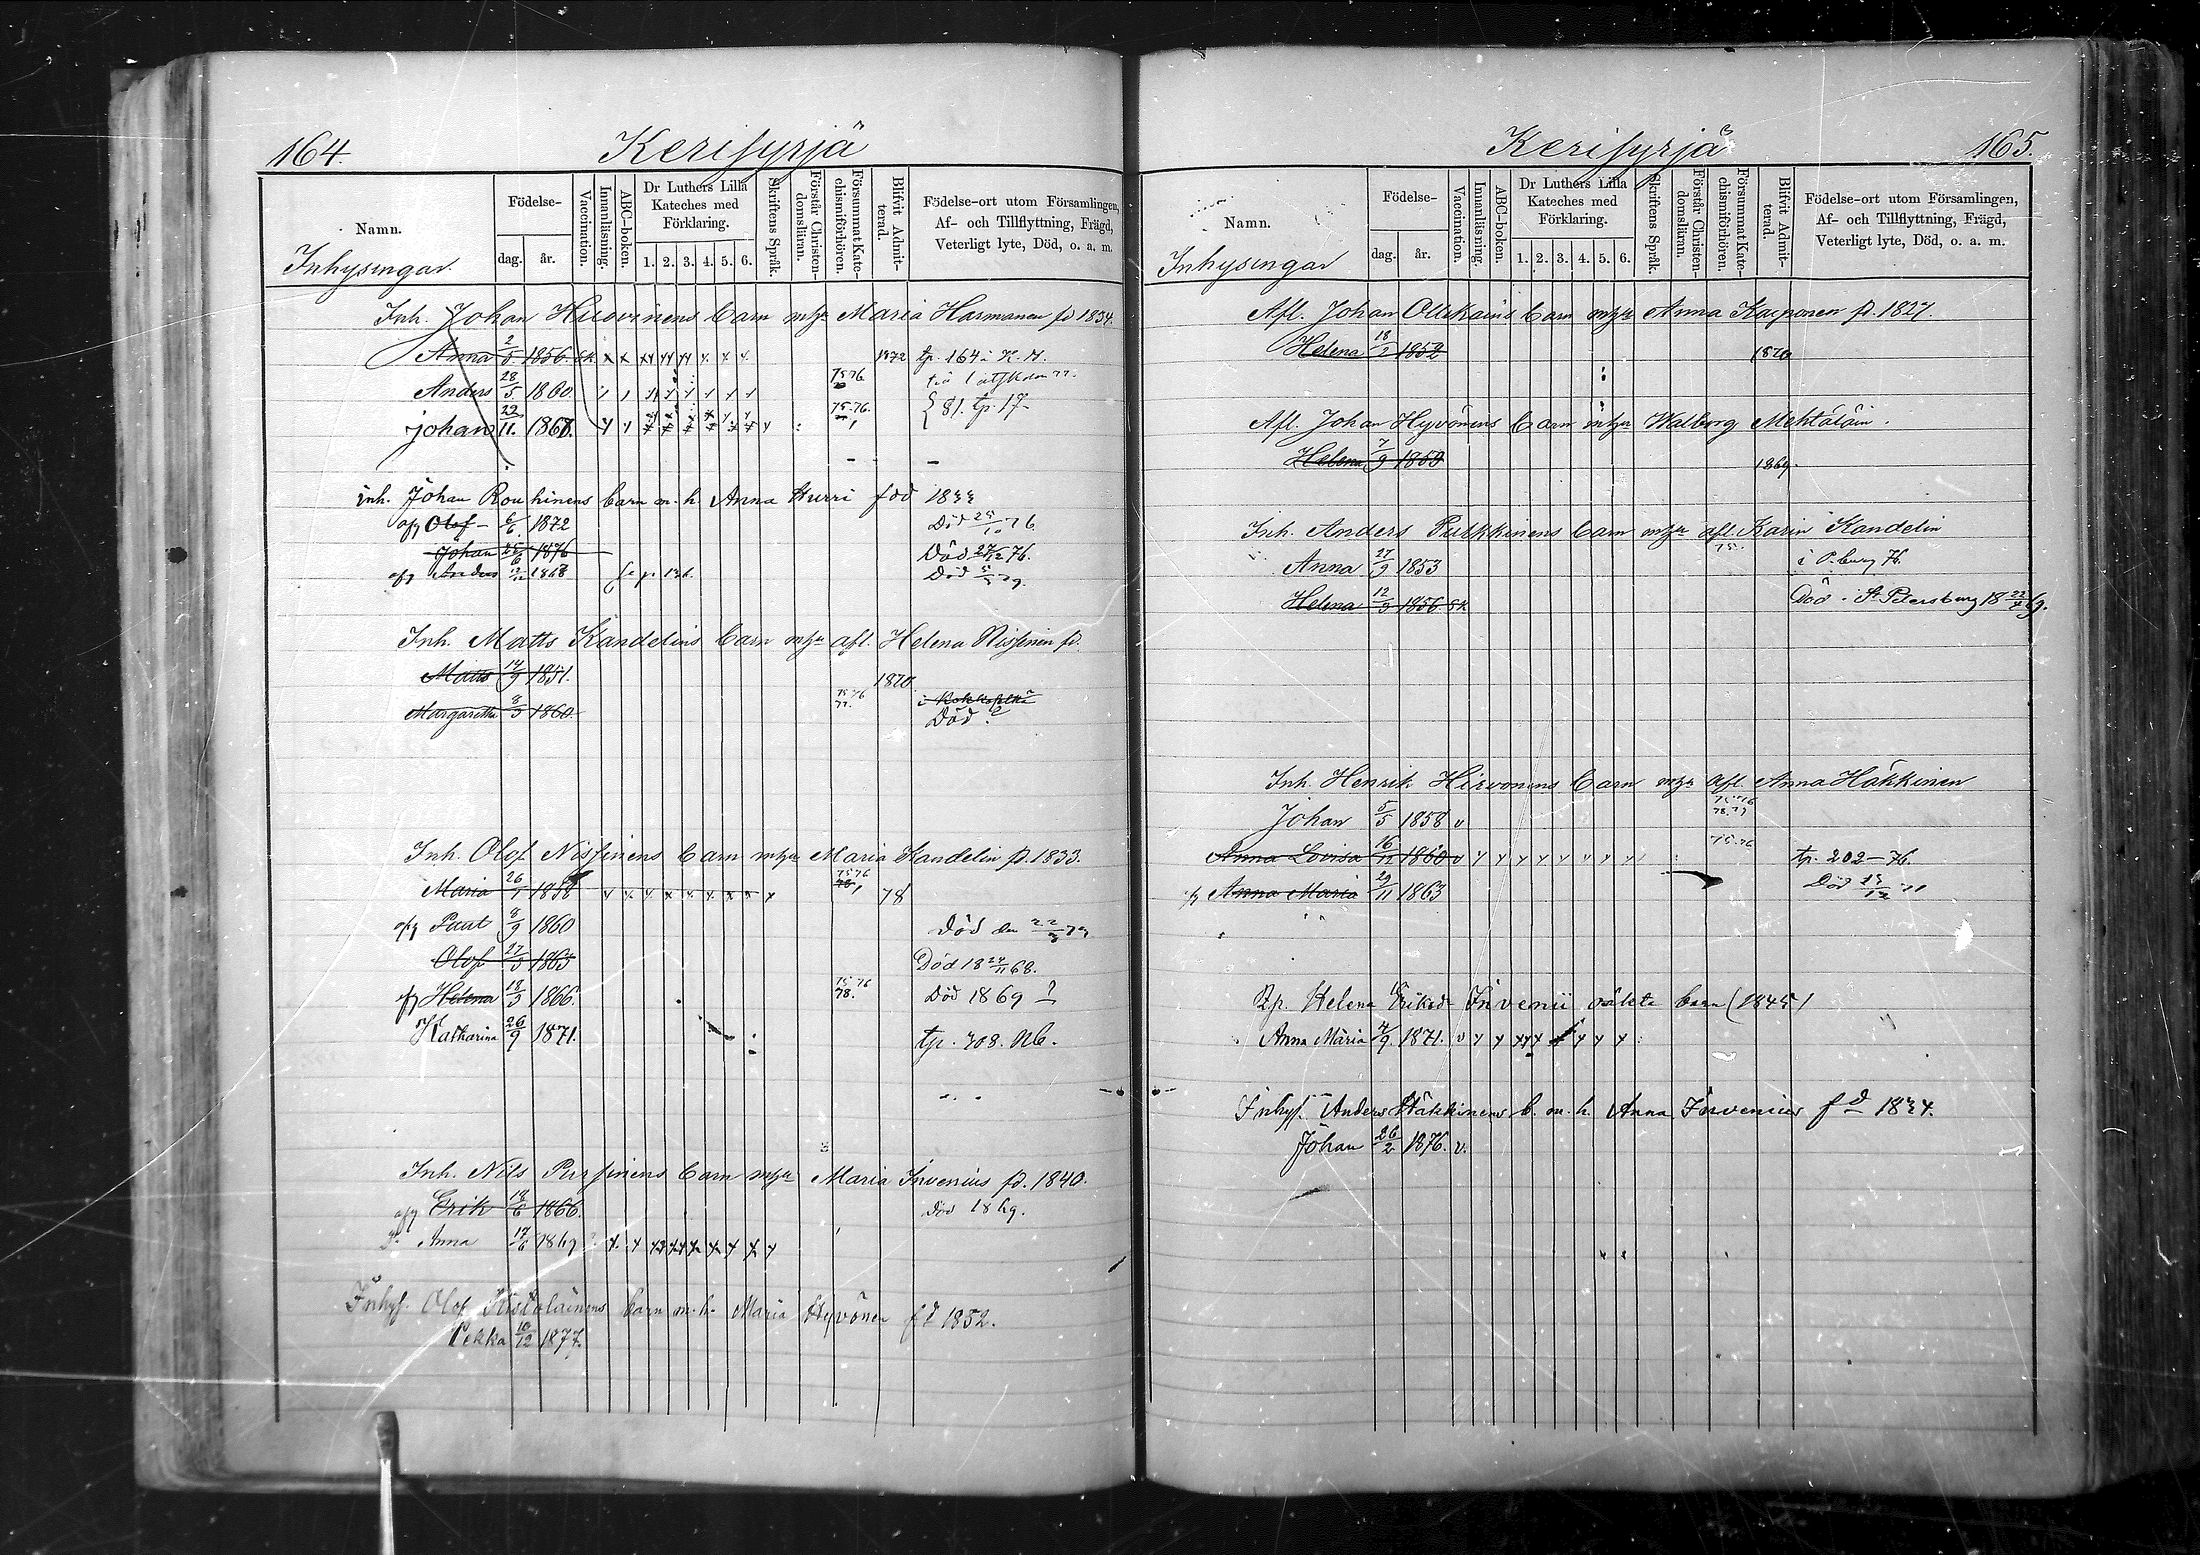 164.
Kerisyrjä
Namn.
Födelse-
dag. år.
Vaccination.
Innanläsning.
ABC-boken.
Dr Luthers Lilla Kateches med Förklaring.
1. 2. 3. 4. 5. 6.
Skriftens Språk.
Förstår Christendomsläran.
Försummat Katechismiförhören.
Blifvit Admitterad.
Födelse-ort utom Församlingen,
Af- och Tillflyttning, Frägd,
Veterligt lyte, Död, o. a. m.
Inhysingar
Inh. Johan Huovinens barn m hu Maria Harmanen fd 1834.
Anna 2/5 1856 1872 tp. 164 i K. H.
Anders 28/5 1860 75 76
Johan 29/11. 1868. 75-76. 81. tp. 17-
inh. Johan Rouhinens barn m. h Anna Hurri föd
Olof 6/6 1872 Död 76
Johan 25/6 1876 Död 27/12 76.
Anders 1868 Död
Inh. Matts Kandelins barn m hu afl. Helena Nissinen fd.
Matts 14/9 1851. 1870
Margaretha 8/9 1860 75 76 77. Död.
Inh. Olof Nissinens barn m hu Maria Kandelin fd. 1833.
Maria 26/1 1858 75 76 78
Paul 8/9 1860 Död den
Olof 27/5 1863 Död 18 24/11 68.
Helena 18/9 1866. 75 76 78. Död 1869
Katharina 26/9 1871. tp. 708.
Inh. Nils Pursinens barn m hu Maria Invenius fd. 1840.
Erik 18/6 1866. Död 1869.
Anna 17/6 1869
Inhys. Olof barn m. h. Maria Hyvönen fd 1852.
Pekka 10/12 1877.
Kerisyrjä
165.
Namn.
Födelse-
dag. år.
Vaccination.
Innanläsning.
ABC-boken.
Dr Luthers Lilla Kateches med Förklaring.
1. 2. 3. 4. 5. 6.
Skriftens Språk.
Förstår Christendomsläran.
Försummat Katechismiförhören.
Blifvit Admitterad.
Födelse-ort utom Församlingen,
Af- och Tillflyttning, Frägd,
Veterligt lyte, Död, o. a. m.
Inhysingar
Afl. Johan Ollikains barn m hu Anna Kasponen fd. 1827.
Helena 18/2 1852 1870
Afl. Johan Hyvönens barn m hu Walborg Mehtäläin.
Helena 7/9 1850 1869.
Inh. Anders Pulkkinens barn m hu afl. Karin Kandelin
Anna 27/9 1853 75. i P.burg 76.
Helena 12/9 1856 Död i St Petersburg 18 69.
Inh. Henrik Hirvonens barn m hu afl. Anna Häkkinen
Johan 5/5 1858 v 75 76
Anna Lovisa 16/12 1860 v 75 76 tp. 202-76.
Anna Maria 29/11 1863 Död
Helena Eriksdr Invenii oäkta barn (1845)
Anna Maria 4/9 1871. v
Inhys. Anders Häkkinens b. m. h. Anna Invenius fd
Johan 26/2 1876. v.